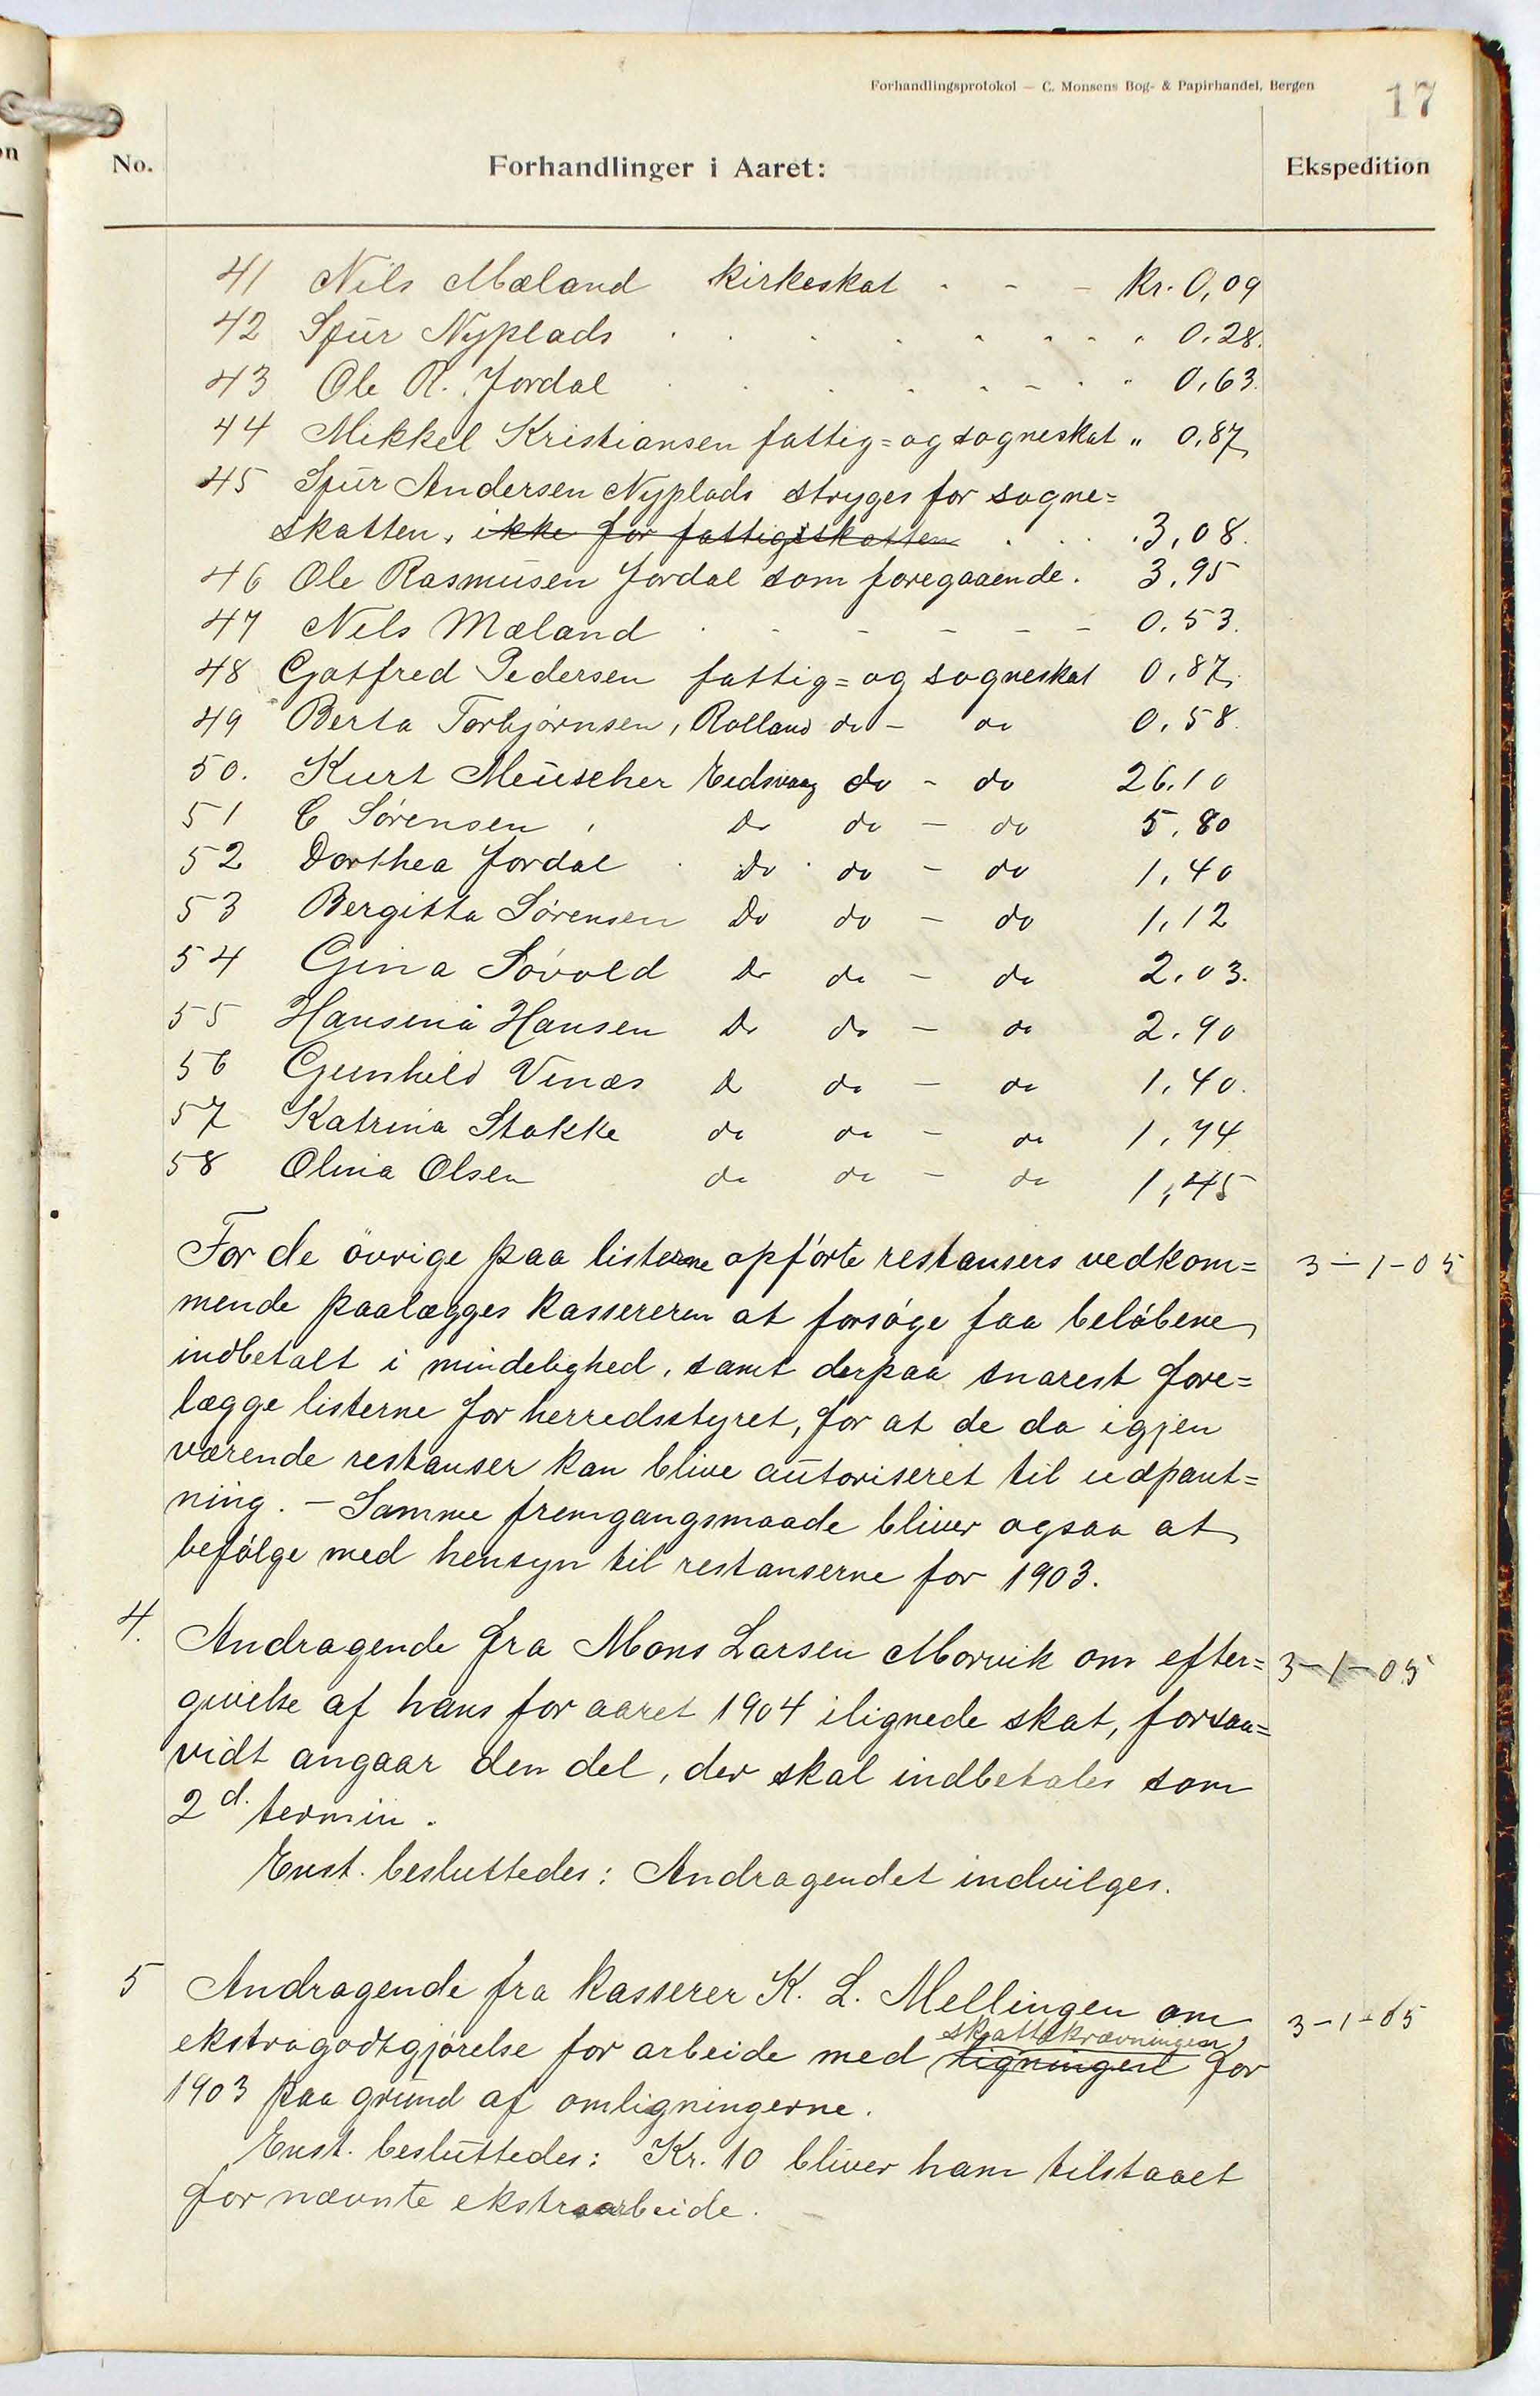 Forhandlingsprotokol — C. Monsens Bog- & Papirhandel, Bergen
17
No. Forhandlinger i Aaret: Ekspedition
41 Nils Mæland kirkeskat - - - Kr. 0,09
42 Sjur Nyplads . . . . . . . " 0.28.
43 Ole R. Jordal . . . . . - . " 0,63.
44 Mikkel Kristiansen fattig= og sogneskat " 0,87
45 Sjur Andersen Nyplads stryges for sogne=
skatten, ikke for fattigskatten . . . . 3,08.
46 Ole Rasmusen Jordal som foregaaende. 3,95
47 Nels Mæland . - - - - - 0.53.
48 Gotfred Pedersen fattig= og sogneskat 0,87.
49 Berta Torbjørnsen, Rolland do - do 0,58.
50. Kurt Meuscher Eidsvaag do - do 26.10
51 C Sørensen , Do do - do 5.80
52 Dorthea Jordal . Do do - do 1,40
53 Bergitta Sørensen Do do - do 1,12
54 Gina Søvold Do do - do 2.03.
55 Hansina Hansen Do do - do 2.90
56 Gunhild Vinæs D do - do 1,40.
57 Katrina Stokke do do - do 1,74
58 Olina Olsen do do - do 1,45
For de øvrige paa listerne opførte restansers vedkom= 3-1-05
mende paalægges kassereren at forsøge faa beløbene
indbetalt i mindelighed, samt derpaa snarest fore=
lægge listerne for herredsstyret, for at de da igjen
værende restanser kan blive autoriseret til udpant=
ning. - Samme fremgangsmaade bliver ogsaa at
befølge med hensyn til restanserne for 1903.
4. Andragende fra Mons Larsen Morvik om efter= 3-1-05
givelse af hans for aaret 1904 ilignede skat, forsaa=
vidt angaar den del, der skal indbetales som
2d. termin.
Enst. besluttedes: Andragendet indvilges.
5 Andragende fra kasserer K. L. Mellingen om 3-1-05
skatteskrævningen
ekstragodtgjørelse for arbeide med ligningen for
1903 paa grund af omligningerne.
Enst. besluttedes: Kr. 10 bliver ham tilstaaet
for nævnte ekstraarbeide.